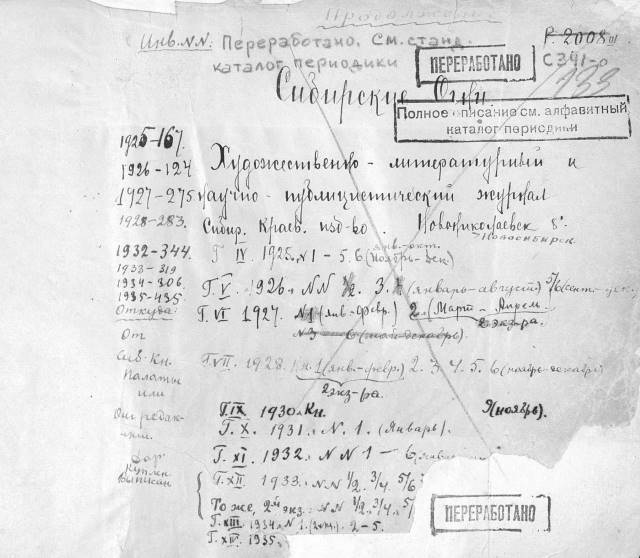 Продолжен
Инв.NN: Переработано. См. станд. Р. 2008
каталог периодики
ПЕРЕРАБОТАНО
С341-р
133
Сибирские Огни
Полное описание см. алфавитный
каталог периодики
1925-167.
1926-124 Художественно - литературный и
1927-275 научно - публицистический журнал
1928-283. Сибир. Краев. изд-во. Новониколаевск 8°.
Новосибирск
1932-344. Г IV. 1925. N1 - 5. 6 (ноябрь - дек)
янв.-окт.
1933-319
1934-306. Г. V. 1926. NN 1/2. 3. (январь-август) 5/6 (сент.-
1935-435
Откуда: Г. VI 1927. N1 (янв-февр.) 2. (Март - Апрель
2 экз-ра.
От N3 - 6 (май-декабрь).
Кн. Г. VII. 1928. Кн. 1 (янв.-февр.) 2. 3. 4. 5. 6 (ноябрь-декабрь)
Палаты
2 экз-ра.
или
От редак- Г. IX. 1930. Кн. (ноябрь).
Г. X. 1931. N. 1. (Январь).
Дар Г. XI. 1932. NN 1 - 6
Куплен
Выписан Г. XII. 1933. NN 1/2. 3/4. 5/6
То же, 2й экз.: NN 1/2. 3/4. 5/
Г. XIII. 1934. N. 1. (2 экз.). 2-5.
Г. XIV. 1935.
ПЕРЕРАБОТАНО